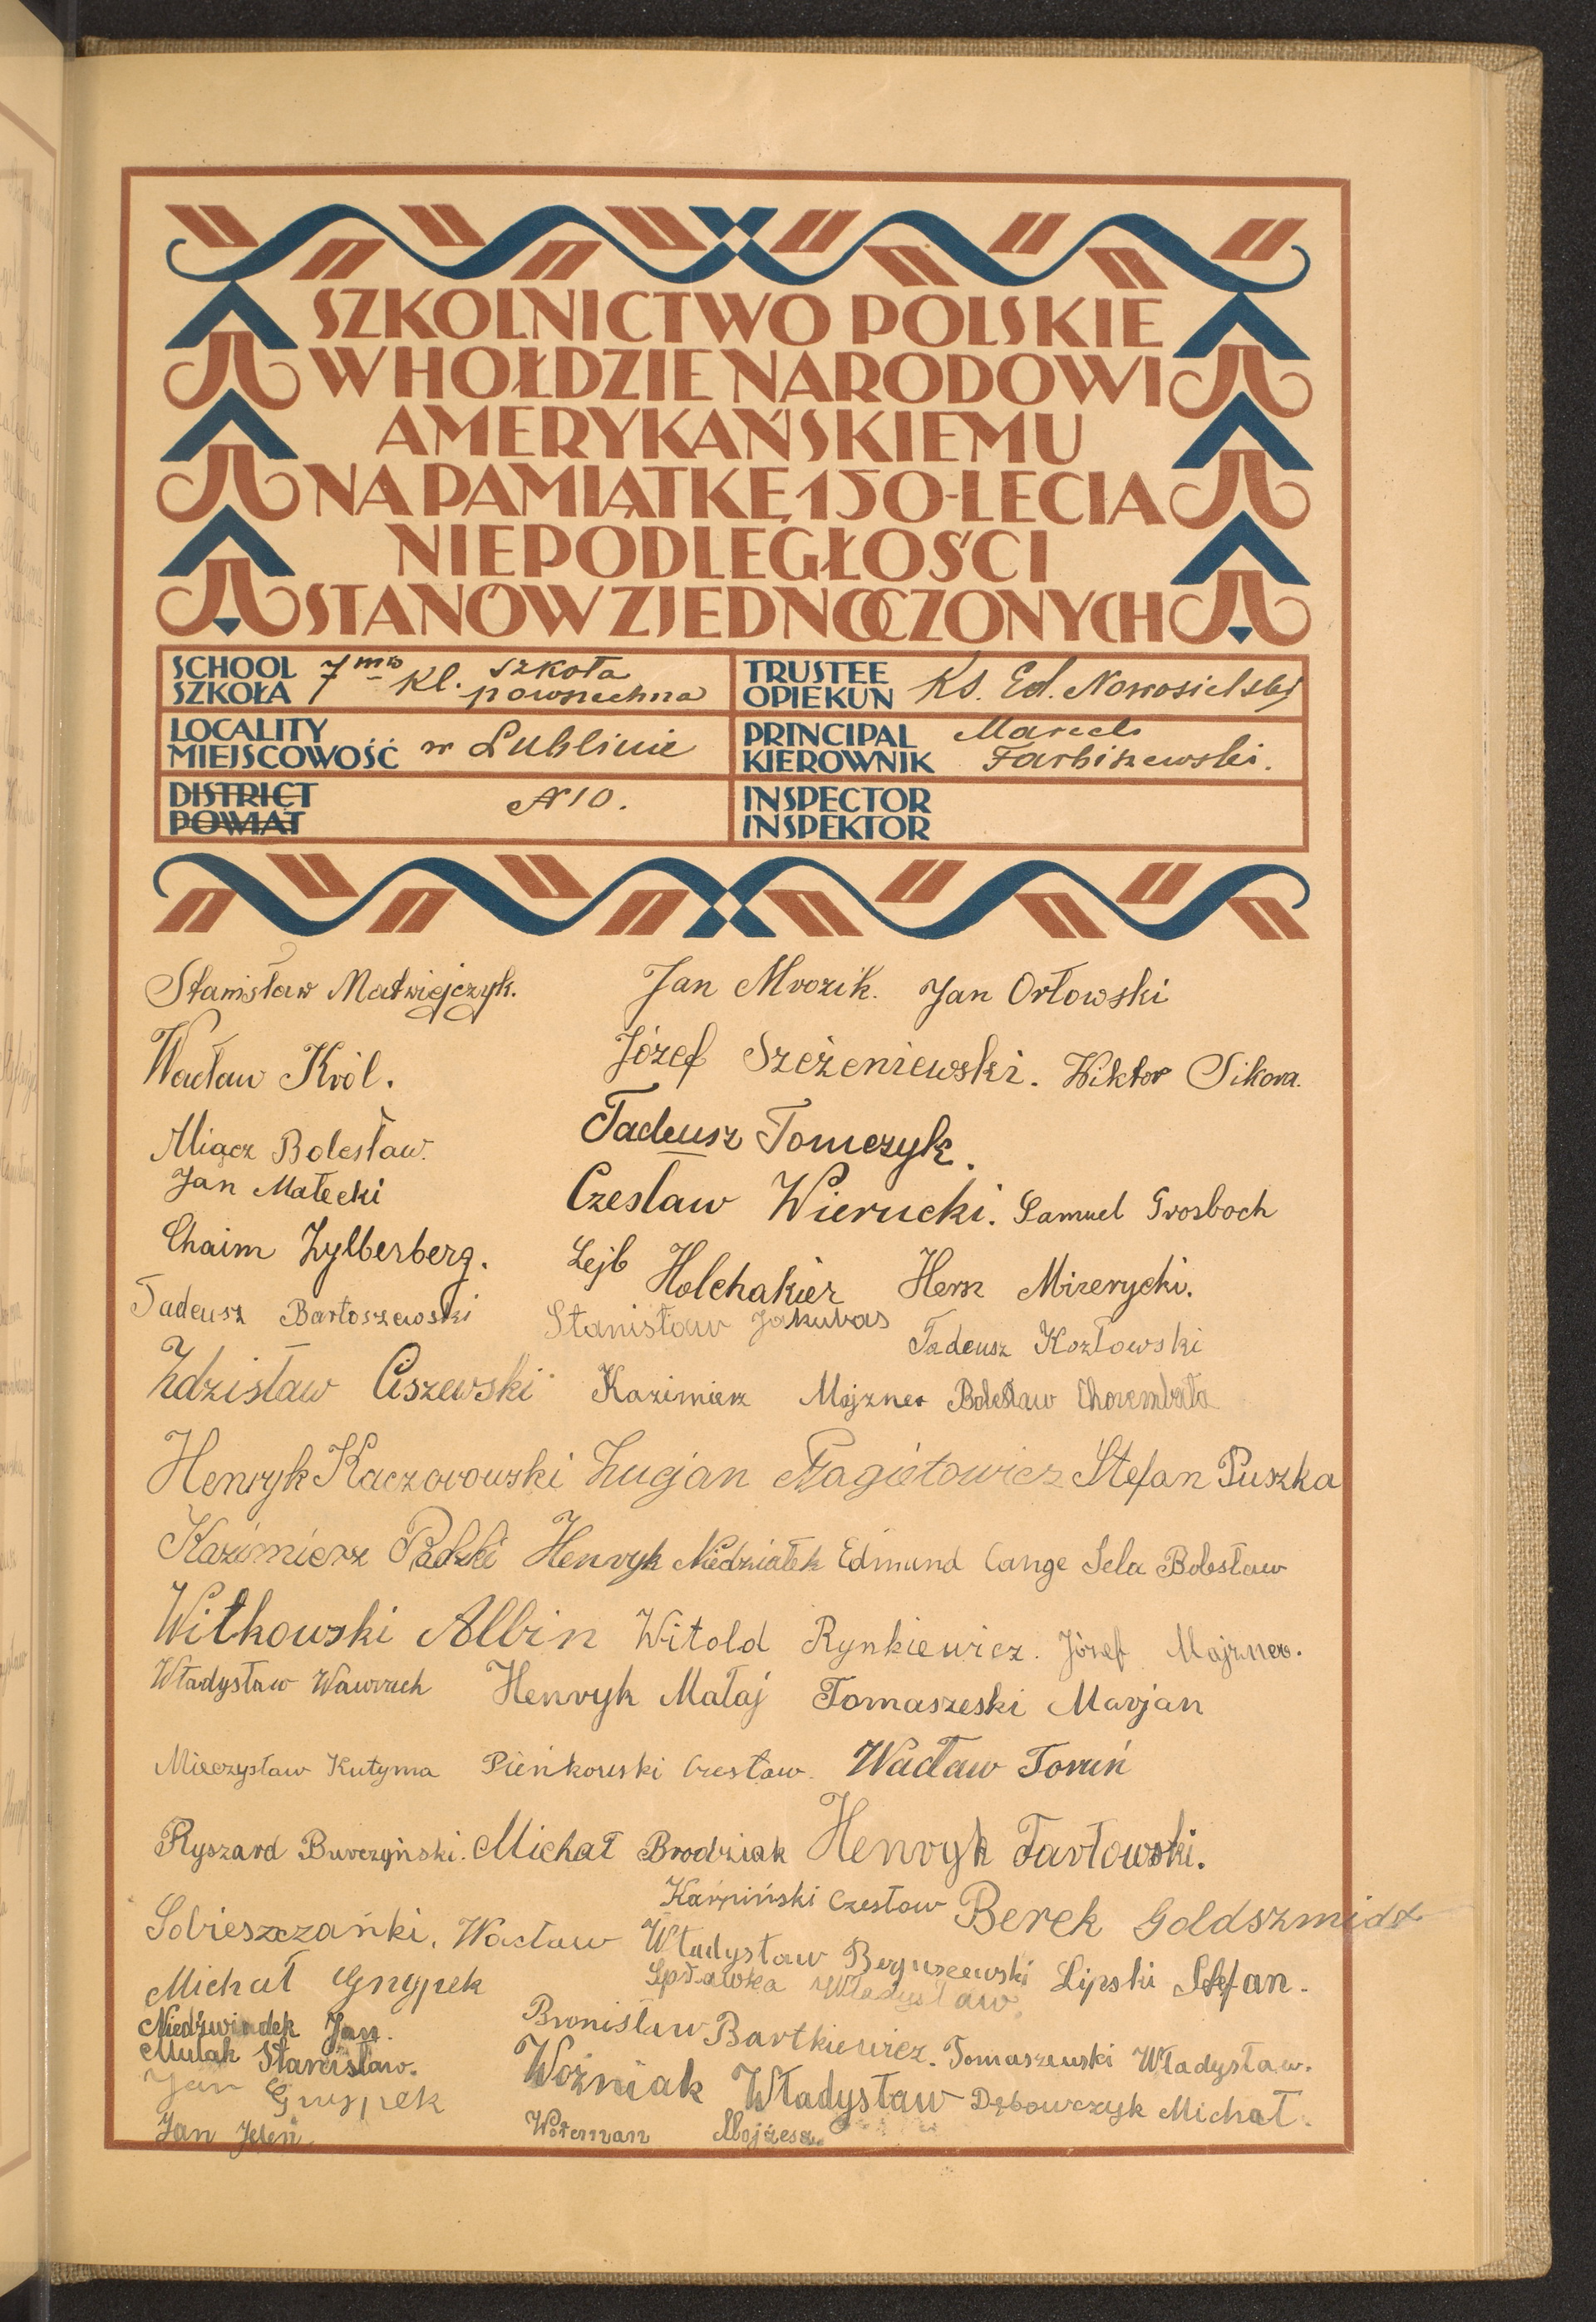 SZKOLNICTWO POLSKIE
W HOŁDZIE NARODOWI
AMERYKAŃSKIEMU
NA PAMIĄTKĘ 150-LECIA
NIEPODLEGŁOŚCI
STANÓW ZJEDNOCZONYCH
SCHOOL SZKOŁA 7mio kl. szkoła powszechna
TRUSTEE OPIEKUN Ks. Ed. Nowosielski
LOCALITY MIEJSCOWOŚĆ w Lublinie
PRINCIPAL KIEROWNIK Marceli Farbiszewski.
DISTRICT POWIAT N 10.
INSPECTOR INSPEKTOR
Stanisław Matwiejczyk. Jan Mrozik. Jan Orłowski
Wacław Król. Józef Szeżeniewski. Wiktor Sikora.
Miącz Bolesław. Tadeusz Tomczyk.
Jan Małecki Czesław Wierucki. Samuel Grosboch
Chaim Zylberberg. Lejb Holchakier Hersz Mizerycki.
Tadeusz Bartoszewski Stanisław Jakubas Tadeusz Kozłowski
Zdzisław Ciszewski Kazimierz Majzner Bolesław
Henryk Kaczorowski Lucjan Stefan Puszka
Kazimierz Henryk Niedziałek Edmund Lange Sela Bolesław
Witkowski Albin Witold Rynkiewicz. Józef Majzner.
Władysław Wawrzuch Henryk Mataj Tomaszeski Marjan
Mieczysław Kutyma Pieńkowski Czesław. Wacław Toruń
Ryszard Burczyński. Michał Brodziak Henryk Tarłowski.
Sobieszczański, Wacław Karpiński Czesław Berek Goldszmidt
Michał Gnypek Władysław Lipski Stefan.
Spławka Władysław
Niedźwiadek Jan. Bronisław Bartkiewicz. Tomaszewski Władysław.
Mulak Stanisław. Woźniak Władysław Dębowczyk Michał.
Jan Gnypek
Jan Jeleń. Mojżesz.